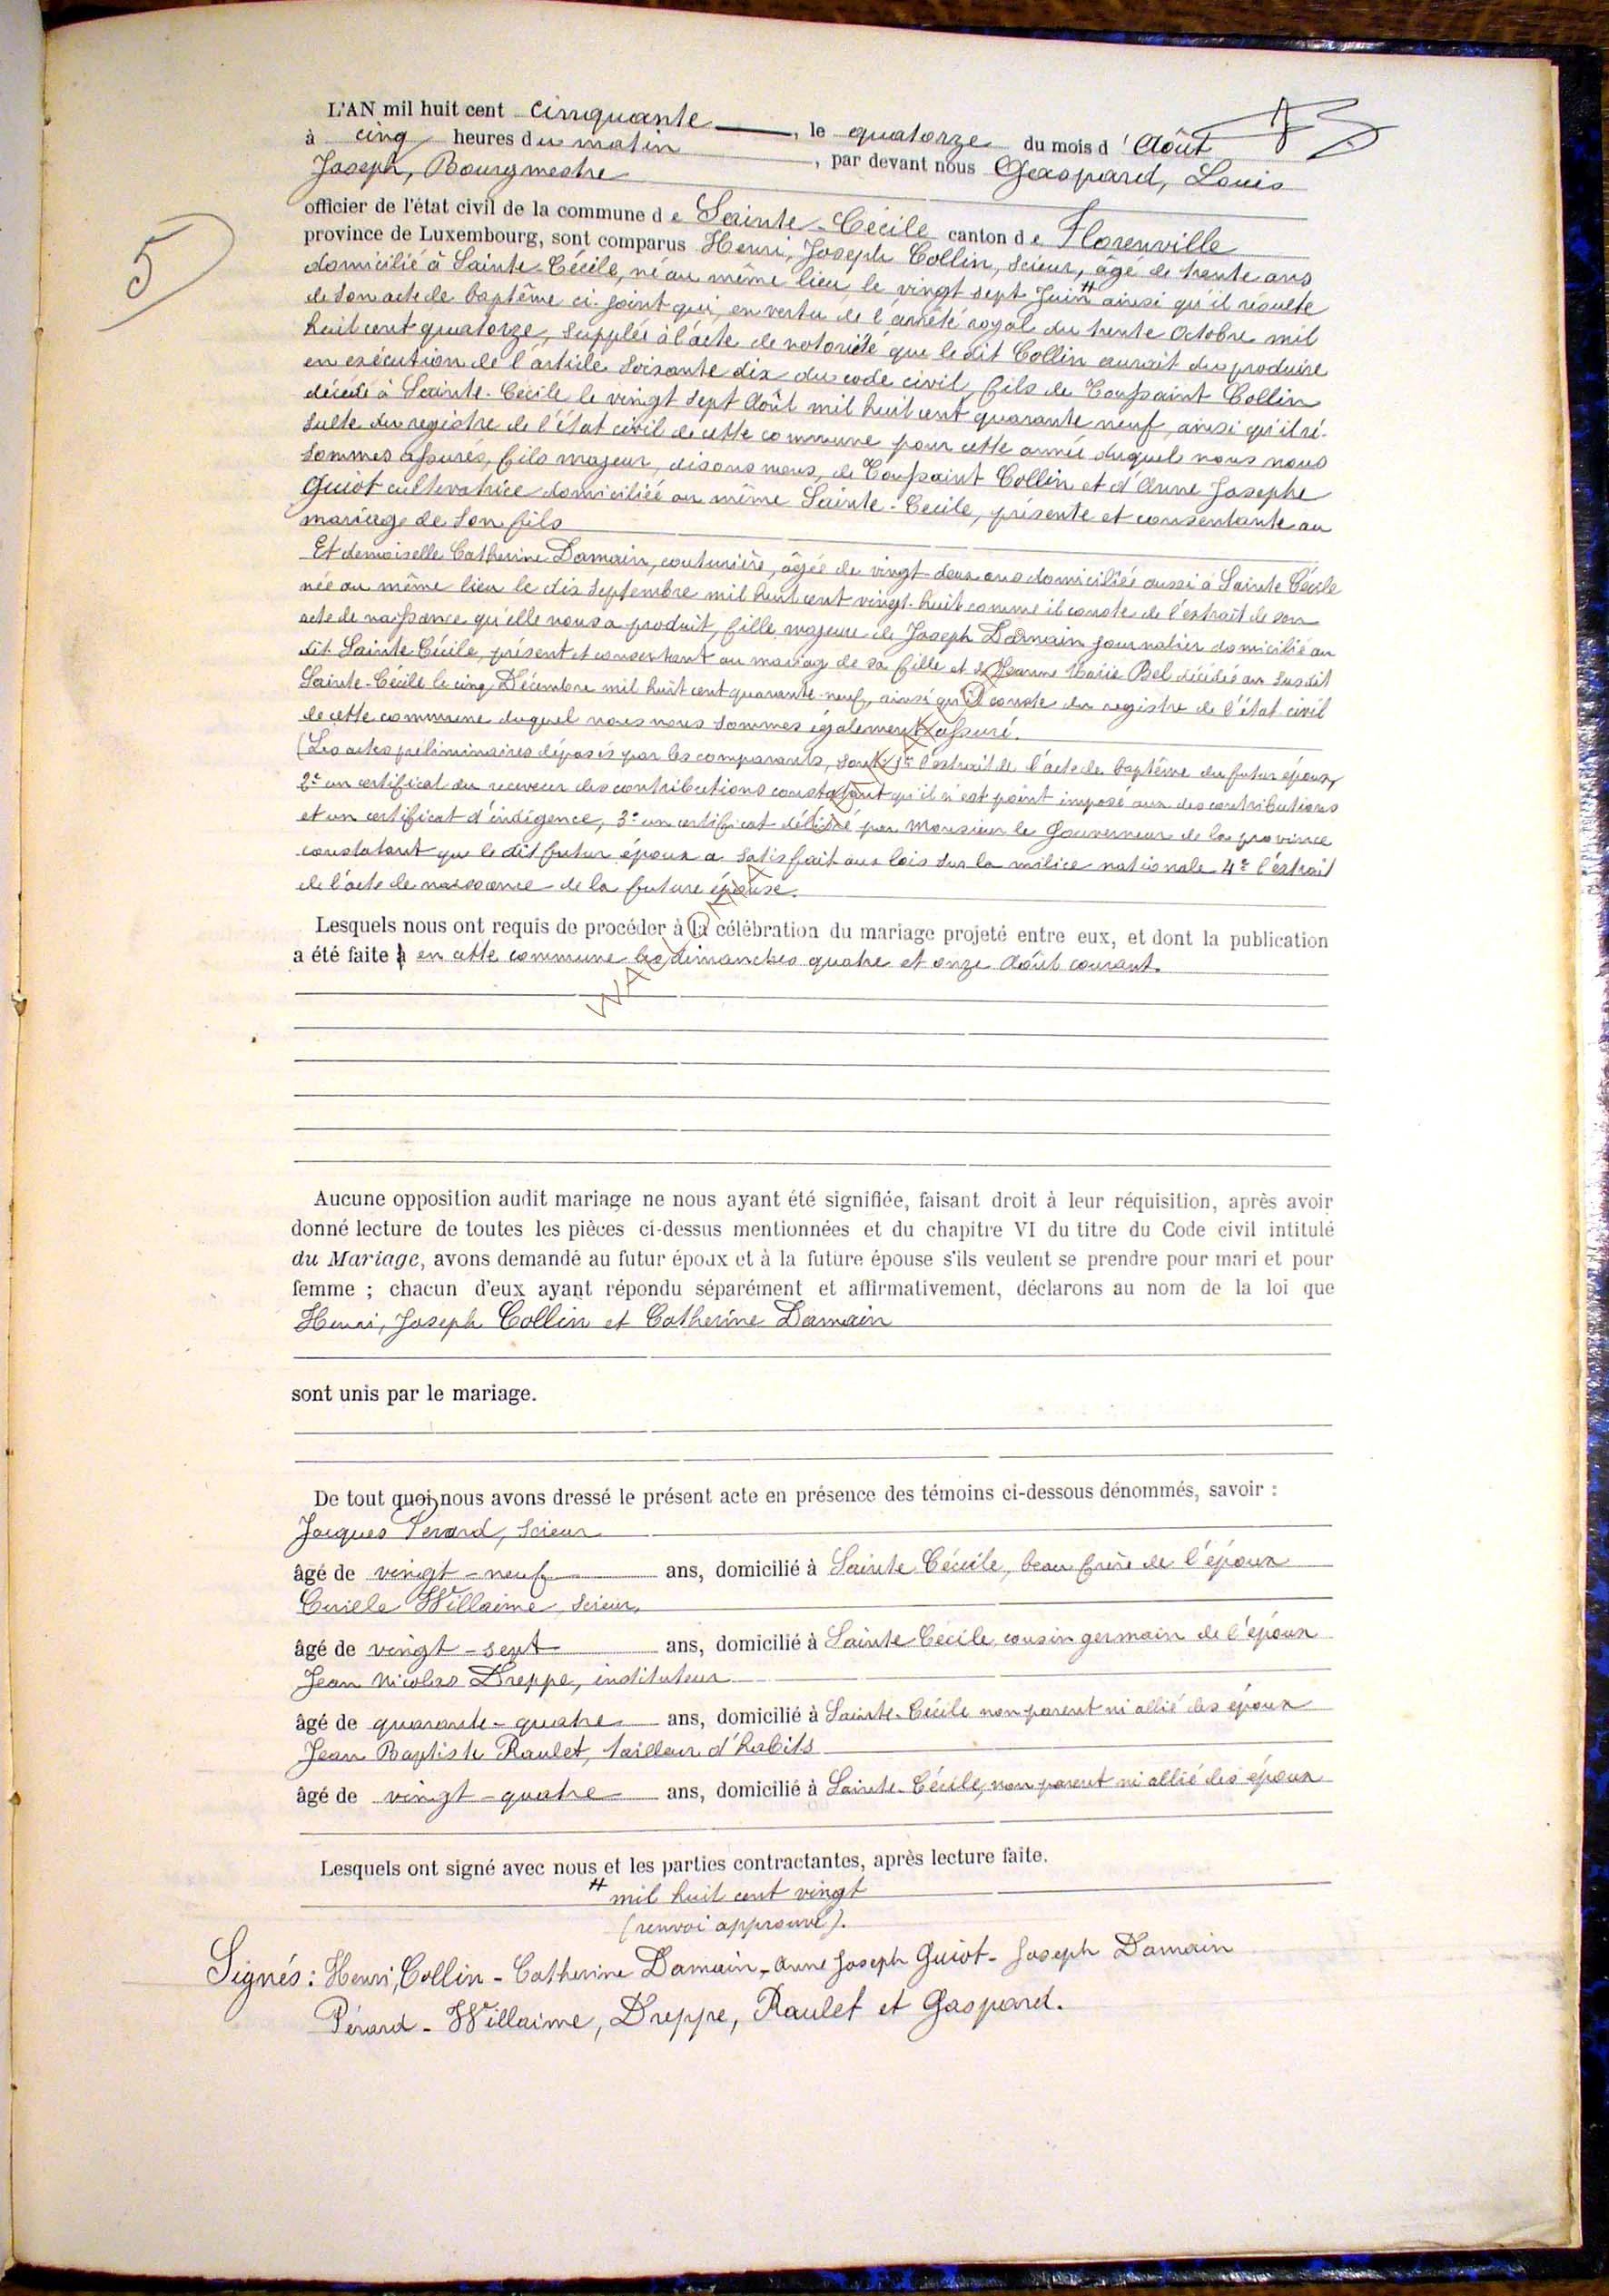 L'AN mil huit cent cinquante, le quatorze du mois d'Aôut
à cinq heures du matin, par devant nous Gaspard, Louis
Joseph, Bourgmestre
officier de l'état civil de la commune de Sainte-Cécile canton de Florenville
province de Luxembourg, sont comparus Henri, Joseph Collin, scieur, âgé de trente ans
5
domicilié à Sainte-Cécile, né au même lieu le vingt sept Juin # ainsi qu'il résulte
de son acte de baptême ci-joint qui, en vertu de l'arrêté royal du trente Octobre mil
huit cent quatorze, supplée à l'acte de notoriété que le dit Collin aurait du produire
en exécution de l'article soixante dix du code civil, fils de Toussaint Collin
décédé à Sainte-Cécile le vingt sept Août mil huit cent quarante neuf, ainsi qu'il ré-
sulte du registre de l'État civil de cette commune pour cette année duquel nous nous
sommes assurés, fils majeur, disons nous, de Toussaint Collin et d'Anne Josephe
Guiot cultivatrice domiciliée au même Sainte-Cecile, présente et consentante au
mariage de son fils
Et demoiselle Catherine Damain, couturière, âgée de vingt-deux ans domiciliée aussi à Sainte Cécile
née au même lieu le dix Septembre mil huit cent vingt-huit comme il conste de l'extrait de son
acte de naissance qu'elle nous a produit, fille majeure de Joseph Damain journalier domicilié au
dit Sainte Cécile, présent et consentant au mariage de sa fille et de Jeanne Marie Bel décédée au susdit
Sainte-Cécile le cinq Décembre mil huit cent quarante-neuf, ainsi qu'il conste du registre de l'état civil
de cette commune duquel nous nous sommes également assuré.
(Les actes préliminaires déposés par les comparants, sont: 1° l'extrait de l'acte de baptême du futur époux,
2° un certificat du receveur des contributions constatant qu'il n'est point imposé aux des contributions
et un certificat d'indigence, 3° un certificat délivré par Monsieur le Gouverneur de la province
constatant que le dit futur époux a satisfait aux lois sur la milice nationale 4° l'extrait
de l'acte de naissance de la future épouse.
Lesquels nous ont requis de procéder à la célébration du mariage projeté entre eux, et dont la publication
a été faite à en cette commune les dimanches quatre et onze Aôut courant.
Aucune opposition audit mariage ne nous ayant été signifiée, faisant droit à leur réquisition, après avoir
donné lecture de toutes les pièces ci-dessus mentionnées et du chapitre VI du titre du Code civil intitulé
du Mariage, avons demandé au futur époux et à la future épouse s'ils veulent se prendre pour mari et pour
femme ; chacun d'eux ayant répondu séparément et affirmativement, déclarons au nom de la loi que
Henri, Joseph Collin et Catherine Damain
sont unis par le mariage.
De tout quoi, nous avons dressé le présent acte en présence des témoins ci-dessous dénommés, savoir :
Jacques Perard, scieur
âgé de vingt-neuf ans, domicilié à Sainte Cécile, beau frère de l'époux
Cirille Willaime, scieur,
âgé de vingt-sept ans, domicilié à Sainte Cécile, cousin germain de l'époux
Jean Nicolas Dreppe, instituteur
âgé de quarante-quatre ans, domicilié à Sainte-Cécile non parent ni allié des époux
Jean Baptiste Raulet, tailleur d'habits
âgé de vingt-quatre ans, domicilié à Sainte-Cécile, non parent ni allié des époux
Lesquels ont signé avec nous et les parties contractantes, après lecture faite.
# mil huit cent vingt
(renvoi approuvé).
Signés : Henri, Collin - Catherine Damain - Anne Joseph Guiot - Joseph Damain
Pérard - Willaime, Dreppe, Raulet et Gaspard.